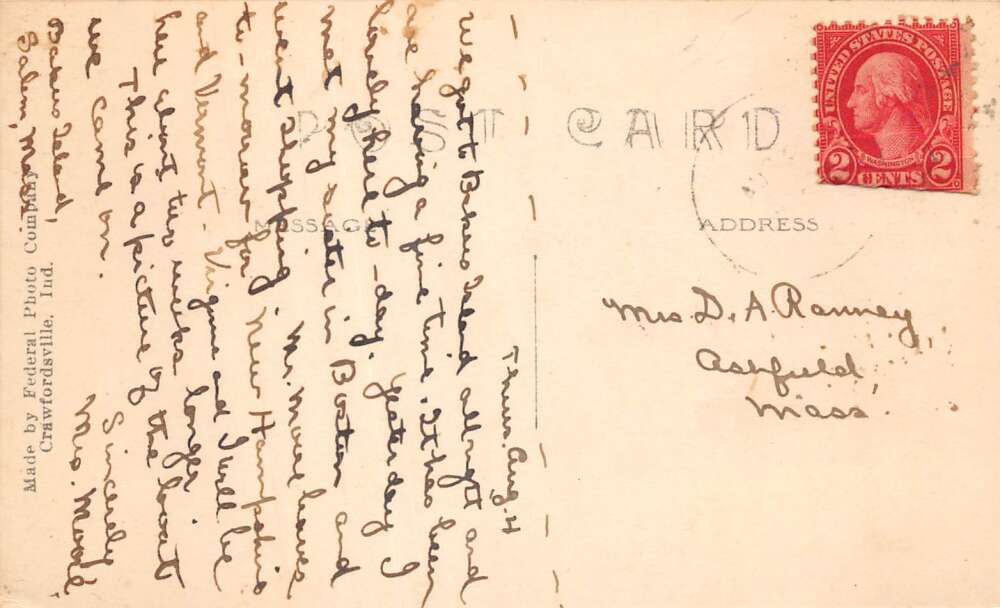 Thurs. Aug. 4
We got to Bakers Island all right and
are having a fine time. It has been
lovely here to-day. Yesterday I
met my sister in Boston and
went shopping. Mr. Moore leaves
to-morrow for New Hampshire
and Vermont. Virginia and I will be
here about two weeks longer.
This is a picture of the boat
we came on.
Sincerely
Mrs. Moore
Bakers Island,
Salem, Mass.
POST CARD
MESSAGE
ADDRESS
UNITED STATES POSTAGE
WASHINGTON
2 CENTS 2
Mrs D. A. Ranney,
Ashfield,
Mass.
Made by Federal Photo Company
Crawfordsville, Ind.